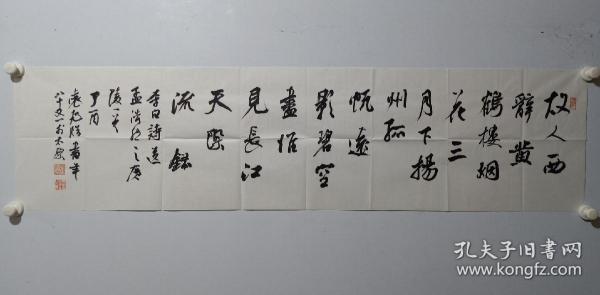 故人西
辭黄
鶴樓烟
花三
月下揚
州孤
帆遠
影碧空
盡惟
見長江
天際
流
李白詩送
孟浩然之廣
陵一首
丁酉
書年
八十又一於太原
孔夫子旧书网
www.kongfz.com